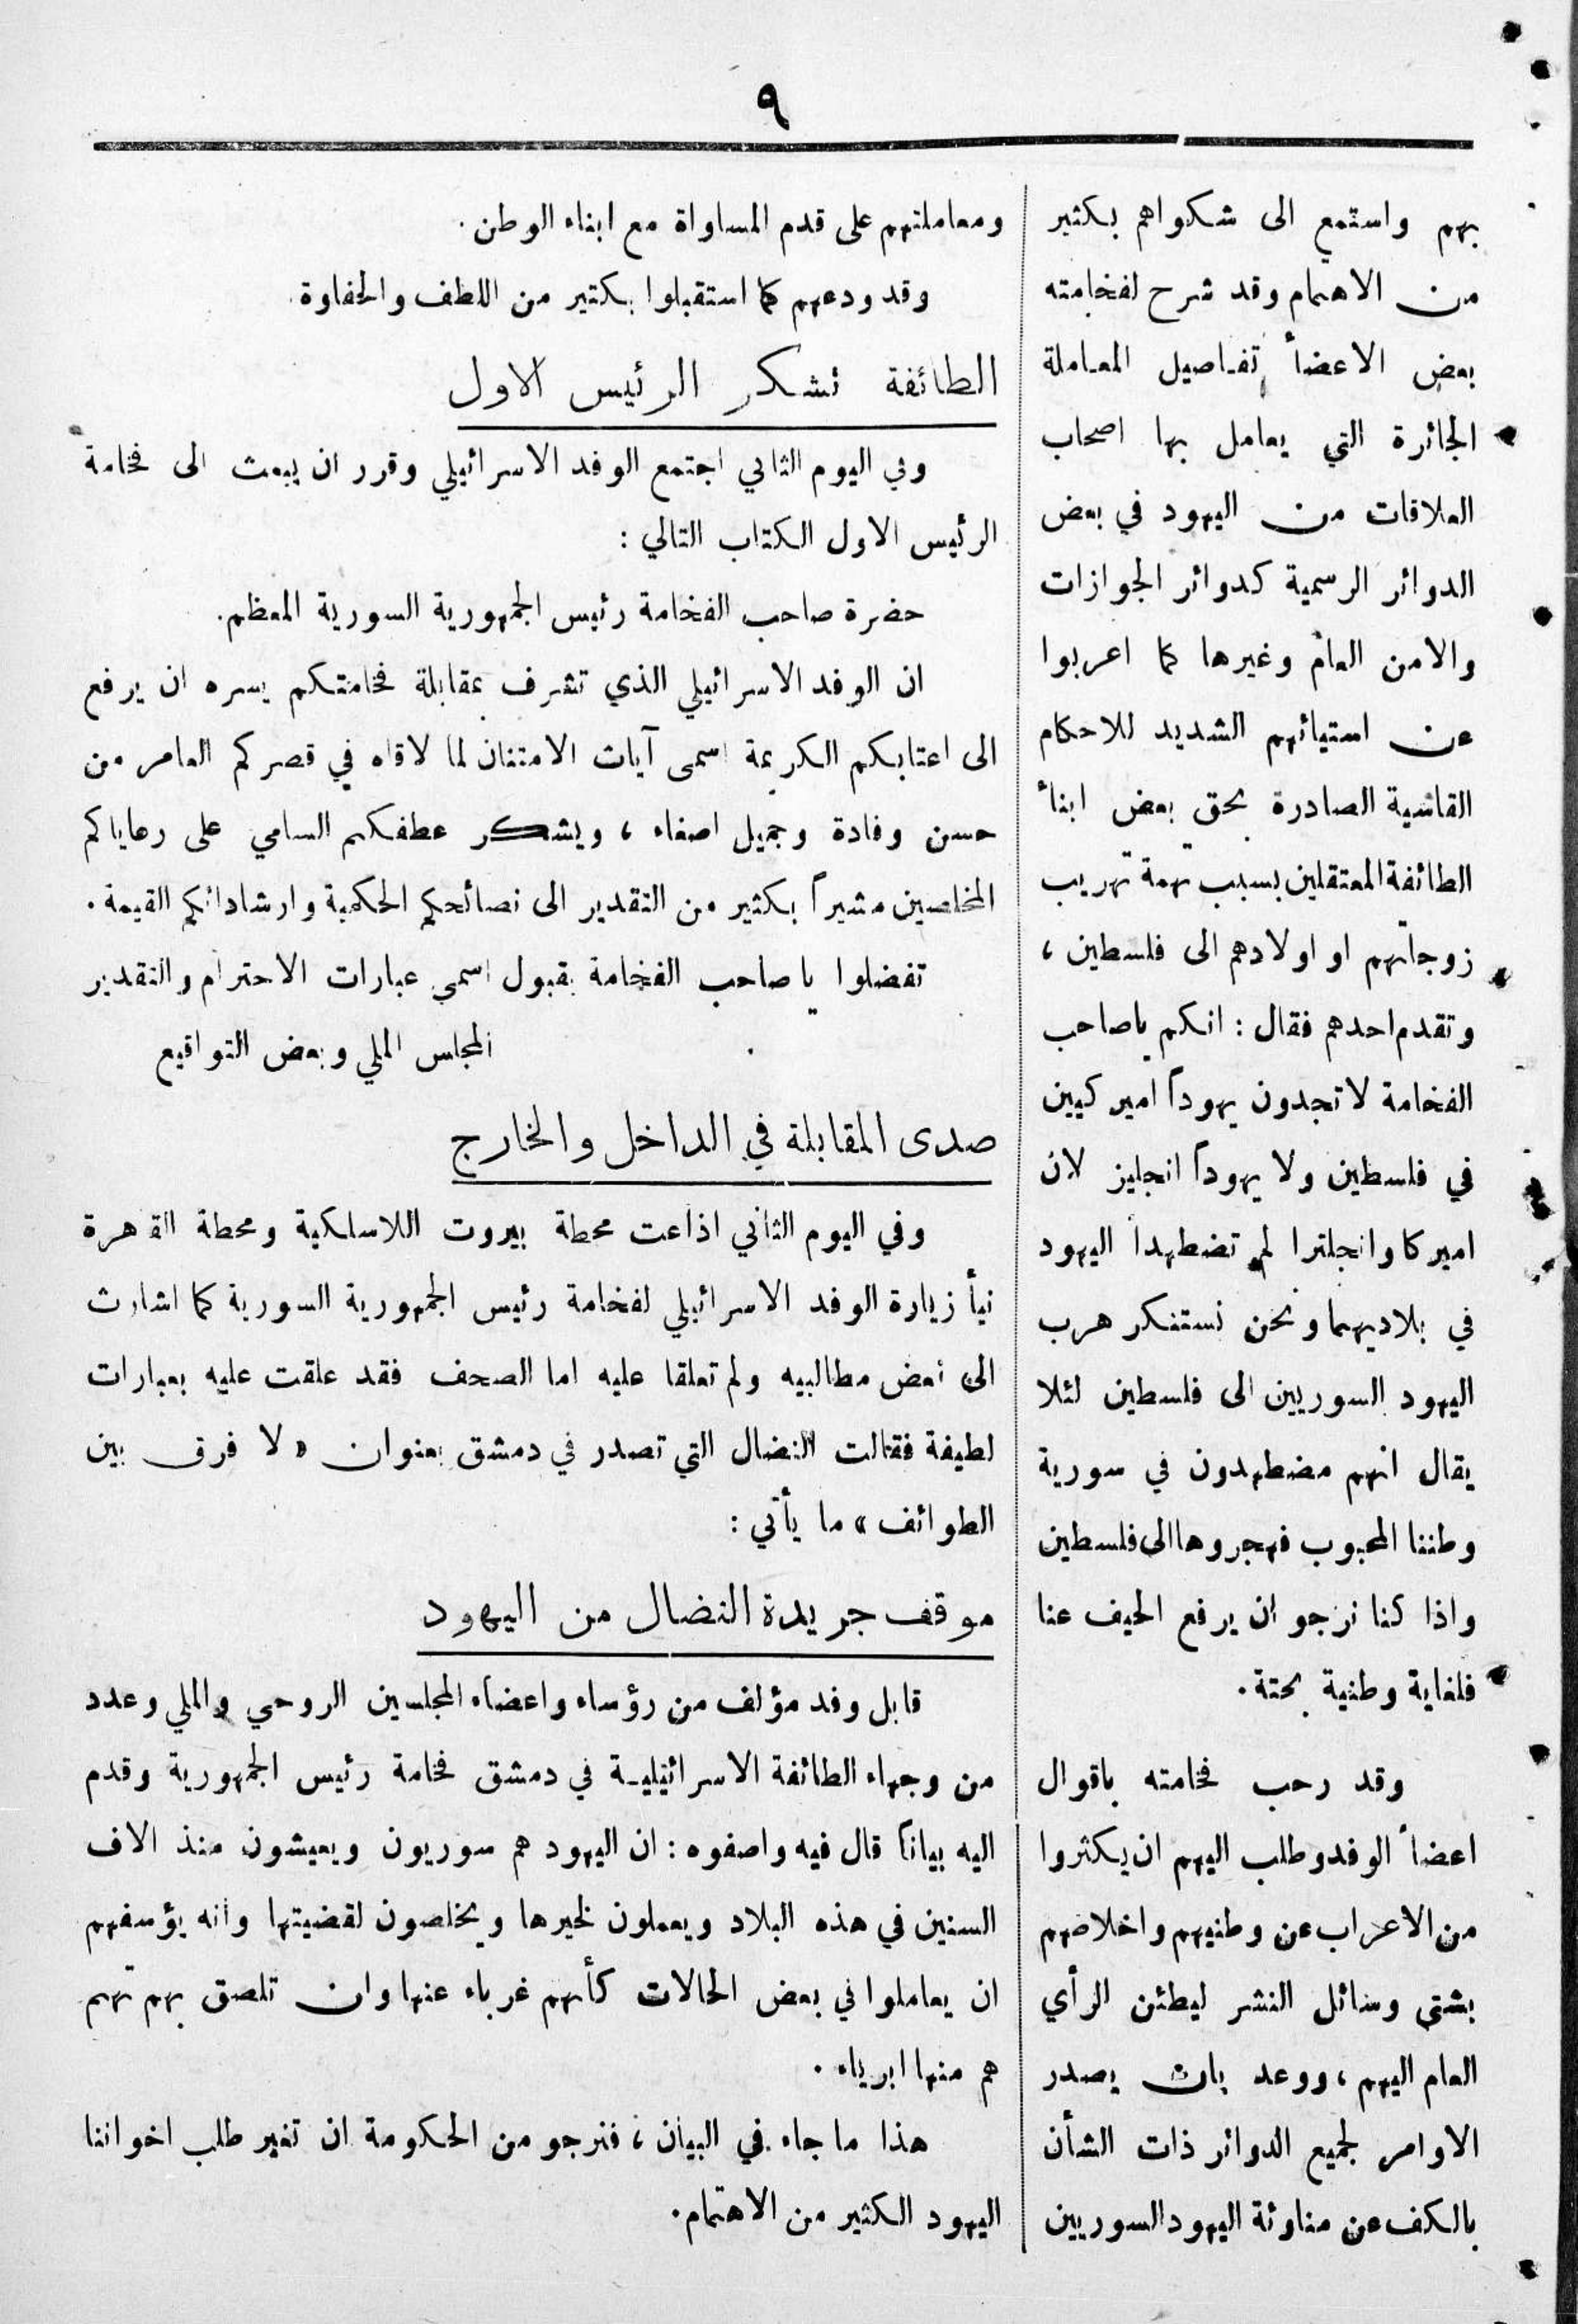 ٩
بهم واستمع الى شكواهم بكثير
من الاهتمام وقد شرح لفخامته
بعض الاعضأ تفاصيل المعاملة
الجائرة التي يعامل بها اصحاب
العلاقات من اليهود في بعض
الدوائر الرسمية كدوائر الجوازات
والامن العام وغيرها كما اعربوا
عن استيائهم الشديد للاحكام
القاسية الصادرة بحق بعض ابنأ
الطائفة المعتقلين بسبب تهمة تهريب
زوجاتهم او اولادهم الى فلسطين ،
وتقدم احدهم فقال : انكم ياصاحب
الفخامة لاتجدون يهوداً اميركيين
في فلسطين ولا يهوداً انجليز لان
اميركا وانجلترا لم تضطهدا اليهود
في بلاديهما ونحن نستنكر هرب
اليهود السوريين الى فلسطين لئلا
يقال انهم مضطهدون في سورية
وطننا المحبوب فهجروها الى فلسطين
واذا كنا نرجو ان يرفع الحيف عنا
فلغاية وطنية بحتة .
وقد رحب فخامته باقوال
اعضأ الوفد وطلب اليهم ان يكثروا
من الاعراب عن وطنيهم واخلاصهم
بشتى وسائل النشر ليطئن الرأي
العام اليهم ، ووعد بان يصدر
الاوامر لجميع الدوائر ذات الشأن
بالكف عن مناوئة اليهود السوريين
ومعاملتهم على قدم المساواة مع ابناء الوطن .
وقد ودعهم كما استقبلوا بكثير من اللطف والحفاوة .
الطائفة تشكر الرئيس الاول
وفي اليوم الثاني اجتمع الوفد الاسرائيلي وقرر ان يبعث الى فخامة
الرئيس الاول الكتاب التالي :
حضرة صاحب الفخامة رئيس الجمهورية السورية المعظم .
ان الوفد الاسرائيلي الذي تشرف بمقابلة فخامتكم يسره ان يرفع
الى اعتابكم الكريمة اسمى آيات الامتنان لما لاقاه في قصركم العامر من
حسن وفادة وجميل اصغاء ، ويشكر عطفكم السامي على رعاياكم
المخلصين مشيراً بكثير من التقدير الى نصائحكم الحكمية وارشاداتكم القيمة .
تفضلوا يا صاحب الفخامة بقبول اسمى عبارات الاحترام والتقدير
المجلس الملي وبعض التواقيع
صدى المقابلة في الداخل والخارج
وفي اليوم الثاني اذاعت محطة بيروت اللاسلكية ومحطة القاهرة
نبأ زيارة الوفد الاسرائيلي لفخامة رئيس الجمهورية السورية كما اشارت
الى بعض مطالبيه ولم تعلقا عليه اما الصحف فقد علقت عليه بعبارات
لطيفة فقالت النضال التي تصدر في دمشق بعنوان « لا فرق بين
الطوائف » ما يأتي :
موقف جريدة النضال من اليهود
قابل وفد مؤلف من رؤساء واعضاء المجلسين الروحي والملي وعدد
من وجهاء الطائفة الاسرائيلية في دمشق فخامة رئيس الجمهورية وقدم
اليه بياناً قال فيه واصفوه : ان اليهود هم سوريون ويعيشون منذ الاف
السنين في هذه البلاد ويعملون لخيرها ويخلصون لقضيتها وانه يؤسفهم
ان يعاملوا في بعض الحالات كأنهم غرباء عنها وان تلصق بهم تهم
هم منها ابرياء .
هذا ما جاء في البيان ، فنرجو من الحكومة ان تغير طلب اخواننا
اليهود الكثير من الاهتمام .